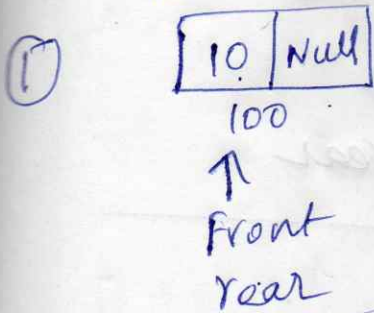 ① 10 Null
100
↑
Front
rear